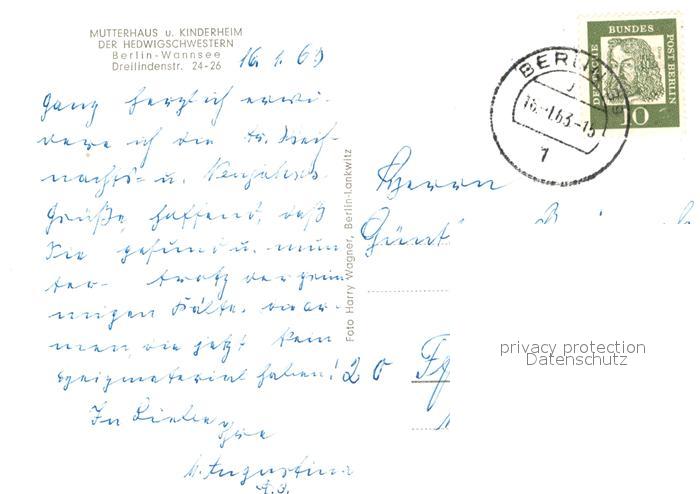 MUTTERHAUS u. KINDERHEIM
DER HEDWIGSCHWESTERN
Berlin-Wannsee
Dreilindenstr. 24-26
16.1.63
Ganz herzlich erwi-
dere ich die lb. Weih-
nachts- u. Neujahrs-
Grüße, hoffend, daß
Sie gesund u. mun
ter trotz der grim
migen Kälte. die Ar-
men, die jetzt kein
Heizmaterial haben!
In Liebe
Ihre
M. Augustina
Foto Harry Wagner, Berlin-Lankwitz
DEUTSCHE BUNDESPOST BERLIN
10
BERLIN 39
16.-1.63.-15
1
Herrn
Günt
20
privacy protection
Datenschutz